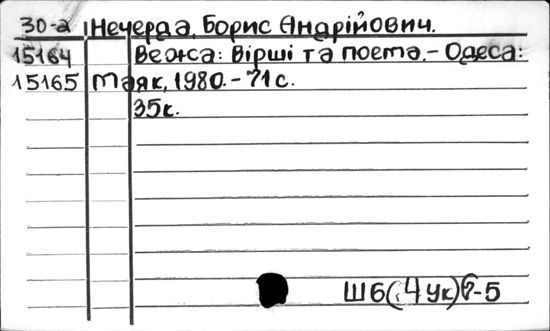 30-а Нечерда, Борис Андрійович.
15164 Вежа: Вірші та поема. - Одеса:
15165 Маяк, 1980. - 71 с.
35к.
Ш6(4Ук)6-5